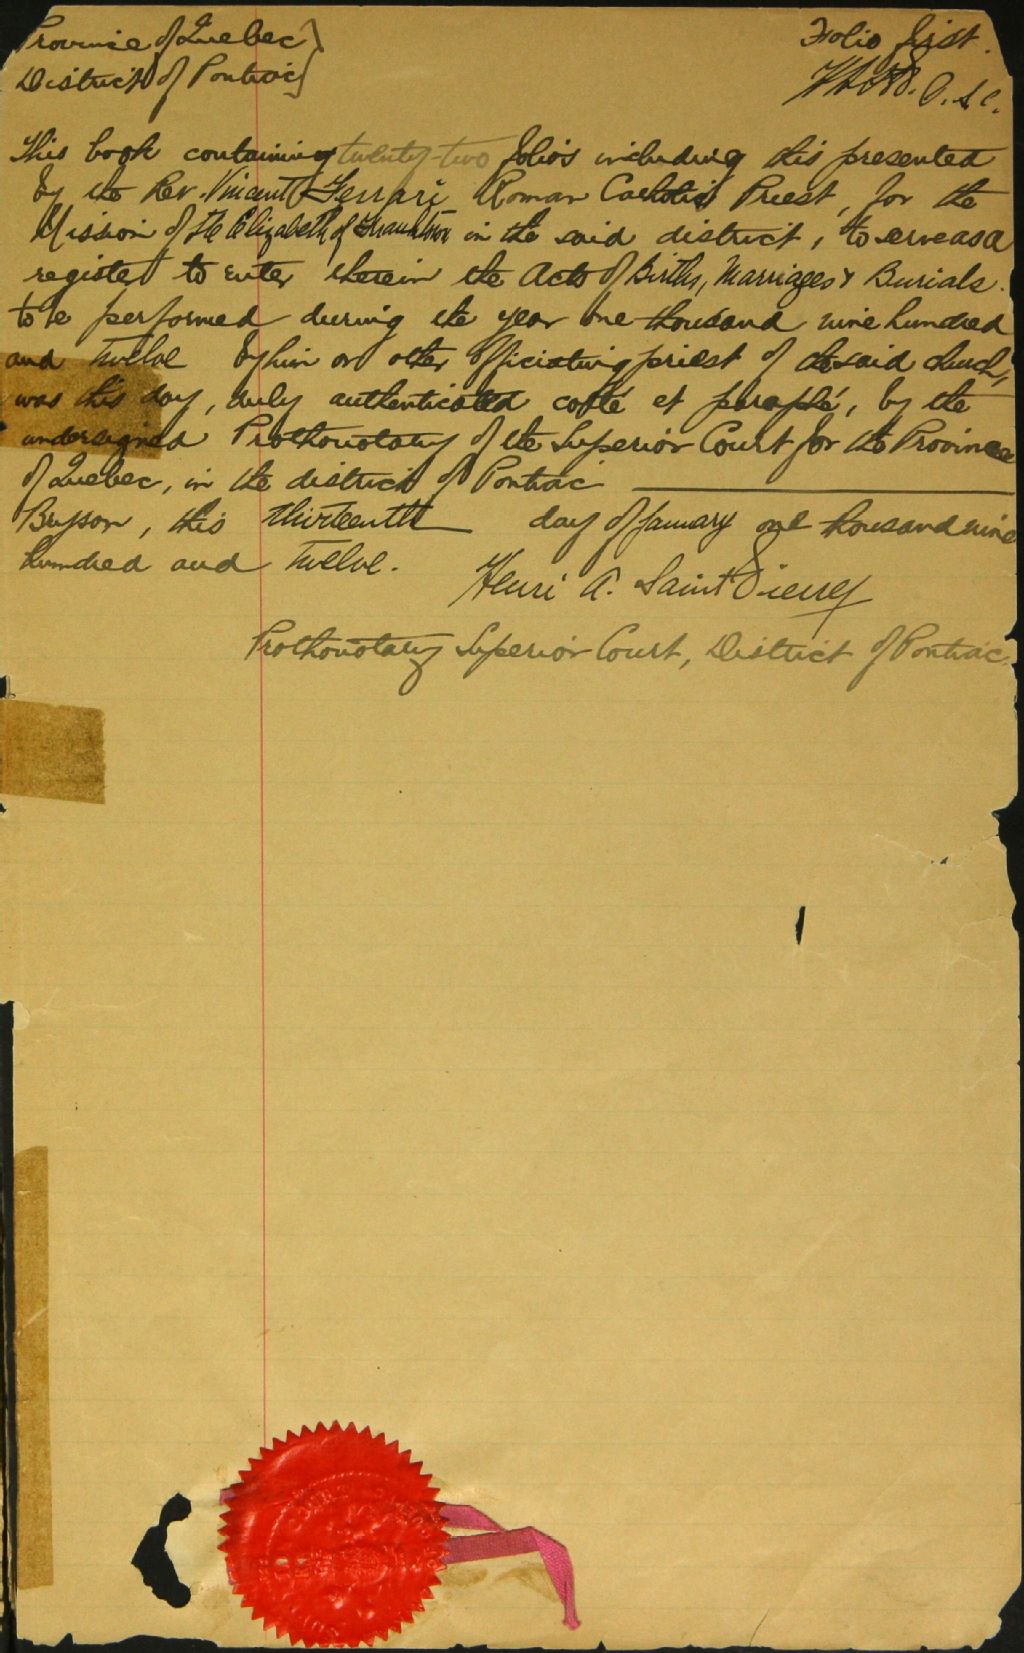 Province of Quebec
District of Pontiac
Folio first.
P.S.C.
This book containing twenty-two folios including this presented
by the Rev. Vincent Ferrari Roman Catholic Priest, for the
Mission of Ste Elizabeth of in the said district, to serve as a
register to enter therein the Acts of Births, Marriages & Burials.
to be performed during the year one thousand nine hundred
and Twelve by him or other officiating priest of the said church,
was this day, duly authenticated coté et paraphé, by the
undersigned Prothonotary of the Superior Court for the Province
of Quebec, in the district of Pontiac
Bryson, this thirteenth day of January one thousand nine
hundred and Twelve.
Henri A. Saint Pierre
Prothonotary Superior Court, District of Pontiac.